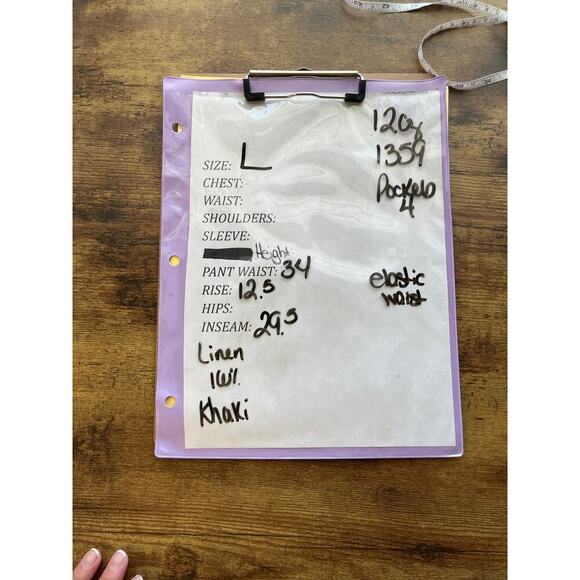 12oz
1359
Pockets
4
SIZE: L
CHEST:
WAIST:
SHOULDERS:
SLEEVE:
Height
PANT WAIST: 34
RISE: 12.5
HIPS:
INSEAM: 29.5
elastic
waist
Linen
Khaki